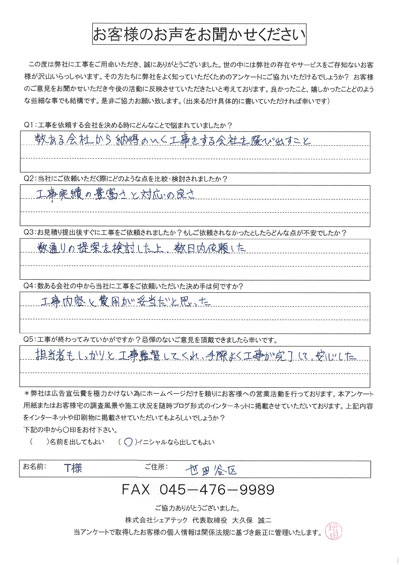 お客様のお声をお聞かせください
この度は弊社に工事をご用命いただき、誠にありがとうございました。世の中には弊社の存在やサービスをご存知ないお客様が沢山いらっしゃいます。その方たちに弊社をよく知っていただくためのアンケートにご協力いただけるでしょうか？ お客様
のご意見をお聞かせいただき今後の活動に反映させていただきたいと考えております。良かったこと、嬉しかったことどのような些細な事でも結構です。是非ご協力お願い致します。（出来るだけ具体的に書いていただければ幸いです）
Q1：工事を依頼する会社を決める時にどんなことで悩まれていましたか？
数ある会社から納得のいく工事をする会社を選び出すこと
Q2：当社にご依頼いただく際にどのような点を比較・検討されましたか？
工事実績の豊富さと対応の良さ
Q3：お見積り提出後すぐに工事をご依頼されましたか？もしご依頼されなかったとしたらどんな点が不安でしたか？
数通りの提案を検討した上、数日内依頼した
Q4：数ある会社の中から当社に工事をご依頼いただいた決め手は何ですか？
工事内容と費用が妥当だと思った
Q5：工事が終わってみていかがですか？忌憚のないご意見を頂戴できましたら幸いです。
担当者もしっかりと工事監督してくれ、手際よく工事が完了して、安心した
＊弊社は広告宣伝費を極力かけない為にホームページだけを頼りにお客様への営業活動を行っております。本アンケート
用紙またはお客様宅の調査風景や施工状況を随時ブログ形式のインターネットに掲載させていただいております。上記内容
をインターネットや印刷物に掲載させていただいてもよろしいでしょうか？
下記の中から○印をお付下さい。
（ ）名前を出してもよい （○）イニシャルなら出してもよい
お名前： T様 ご住所： 世田谷区
FAX 045-476-9989
ご協力ありがとうございました。
株式会社シェアテック 代表取締役 大久保 誠二
当アンケートで取得したお客様の個人情報は関係法規に基づき厳正に管理いたします。